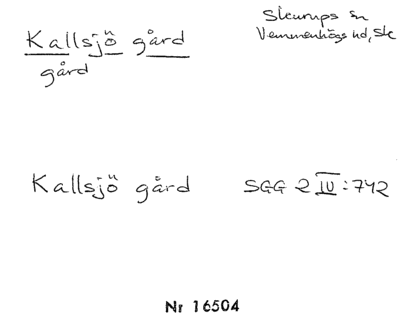 Kallsjö gård
gård
Skurups sn
Vemmenhögs hd, Sk
Kallsjö gård SGG 2 IV:742
Nr 16504